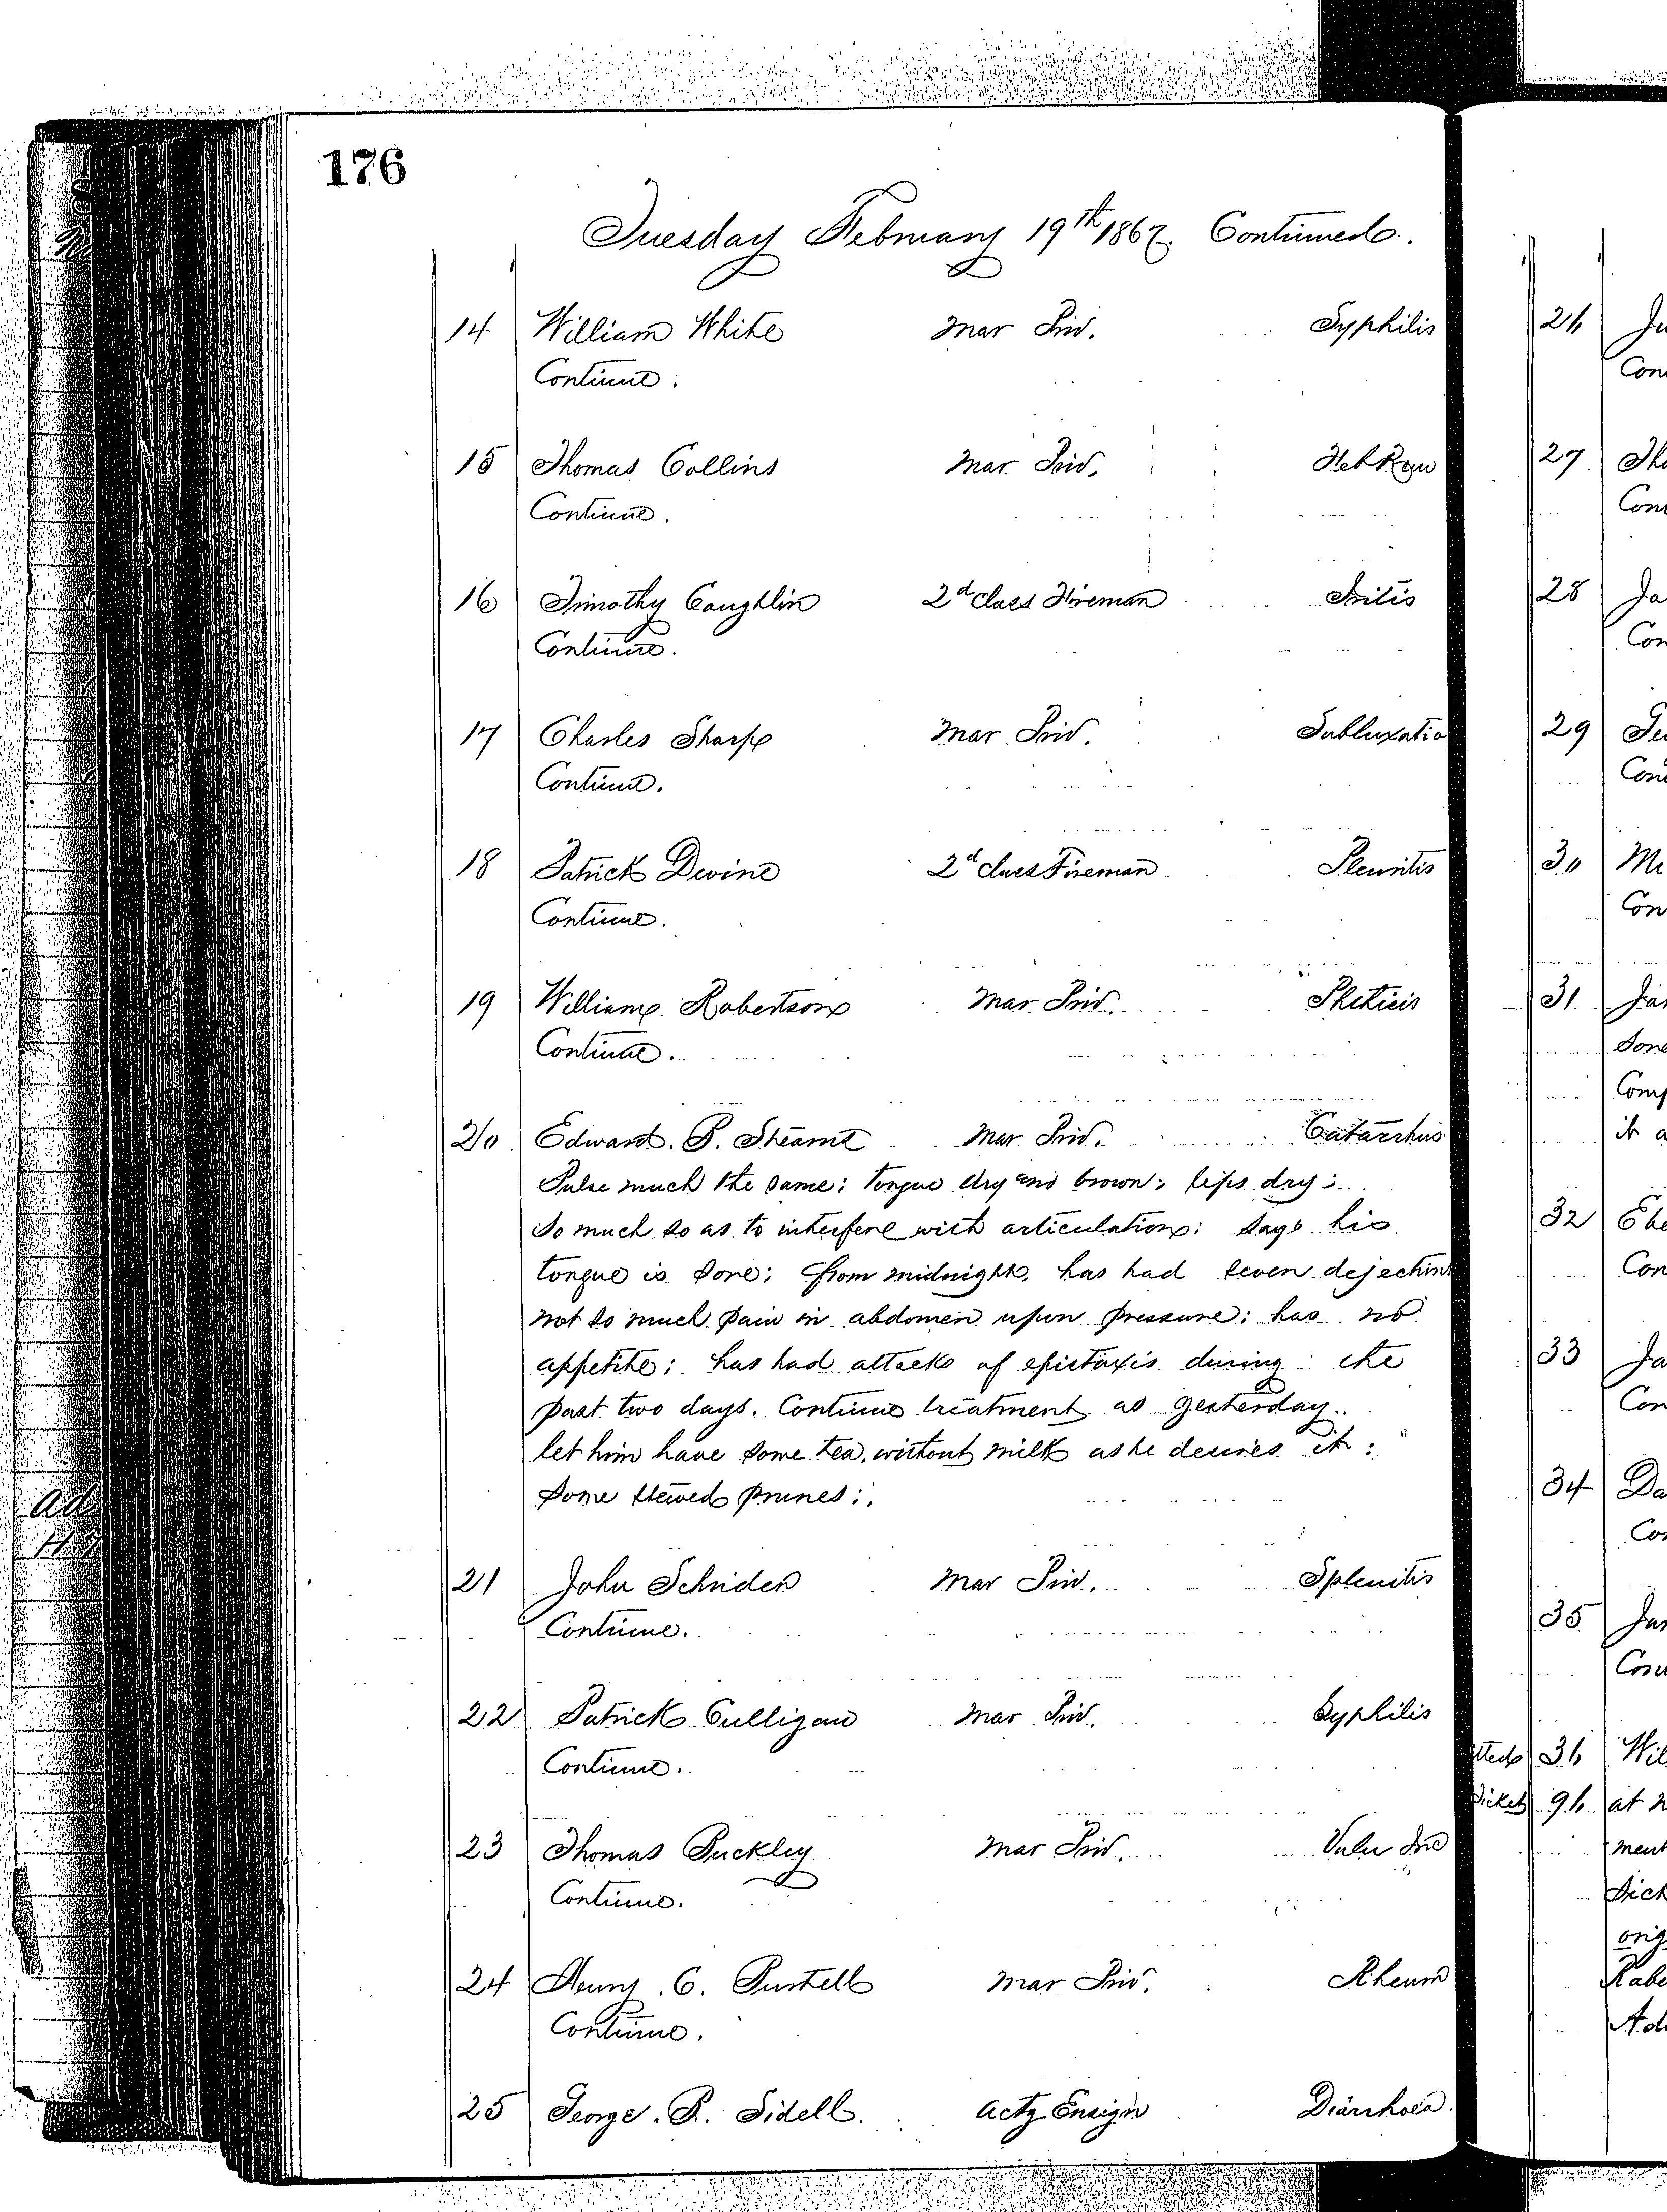 176
Tuesday February 19th 1867. Continued.
14 William White Mar Priv. Syphilis
Continue.
15 Thomas Collins Mar Priv. Feb Rem
Continue.
16 Timothy Coughlin 2d Class Fireman Iritis
Continue.
17 Charles Sharp Mar Priv. Subluxatio
Continue.
18 Patrick Devine 2d Class Fireman Pleuritis
Continue.
19 William Robertson Mar Priv. Phthisis
Continue.
20 Edward. P. Mar. Priv. Catarrhus
Pulse much the same; tongue dry and brown; lips dry;
so much so as to interfere with articulation; says his
tongue is sore; from midnight, has had seven dejections
not so much pain in abdomen upon pressure; has no
appetite; has had attacks of epistaxis during the
past two days. Continue treatment as yesterday.
let him have some tea, without milk as he desires it;
some stewed prunes;.
21 John Schrider Mar Priv. Splenitis
Continue.
22 Patrick Culligan Mar Priv. Syphilis
Continue.
23 Thomas Puckley Mar Priv. Vuln Inc
Continue.
24 Henry. C. Mar Priv. Rheum
Continue.
25 George. R. Sidell. Actg Ensign Diarrhoea.
26
Con
27 Tho
Con
28 Ja
Con
29
Con
30
Con
31 Jam
Sore
Comp
it a
32 Ebe
Con
33 Ja
Con
34 Da
Co
35 Jam
Con
36 Wil
Ticket 96 at n
ment
Sick
orig
Ad